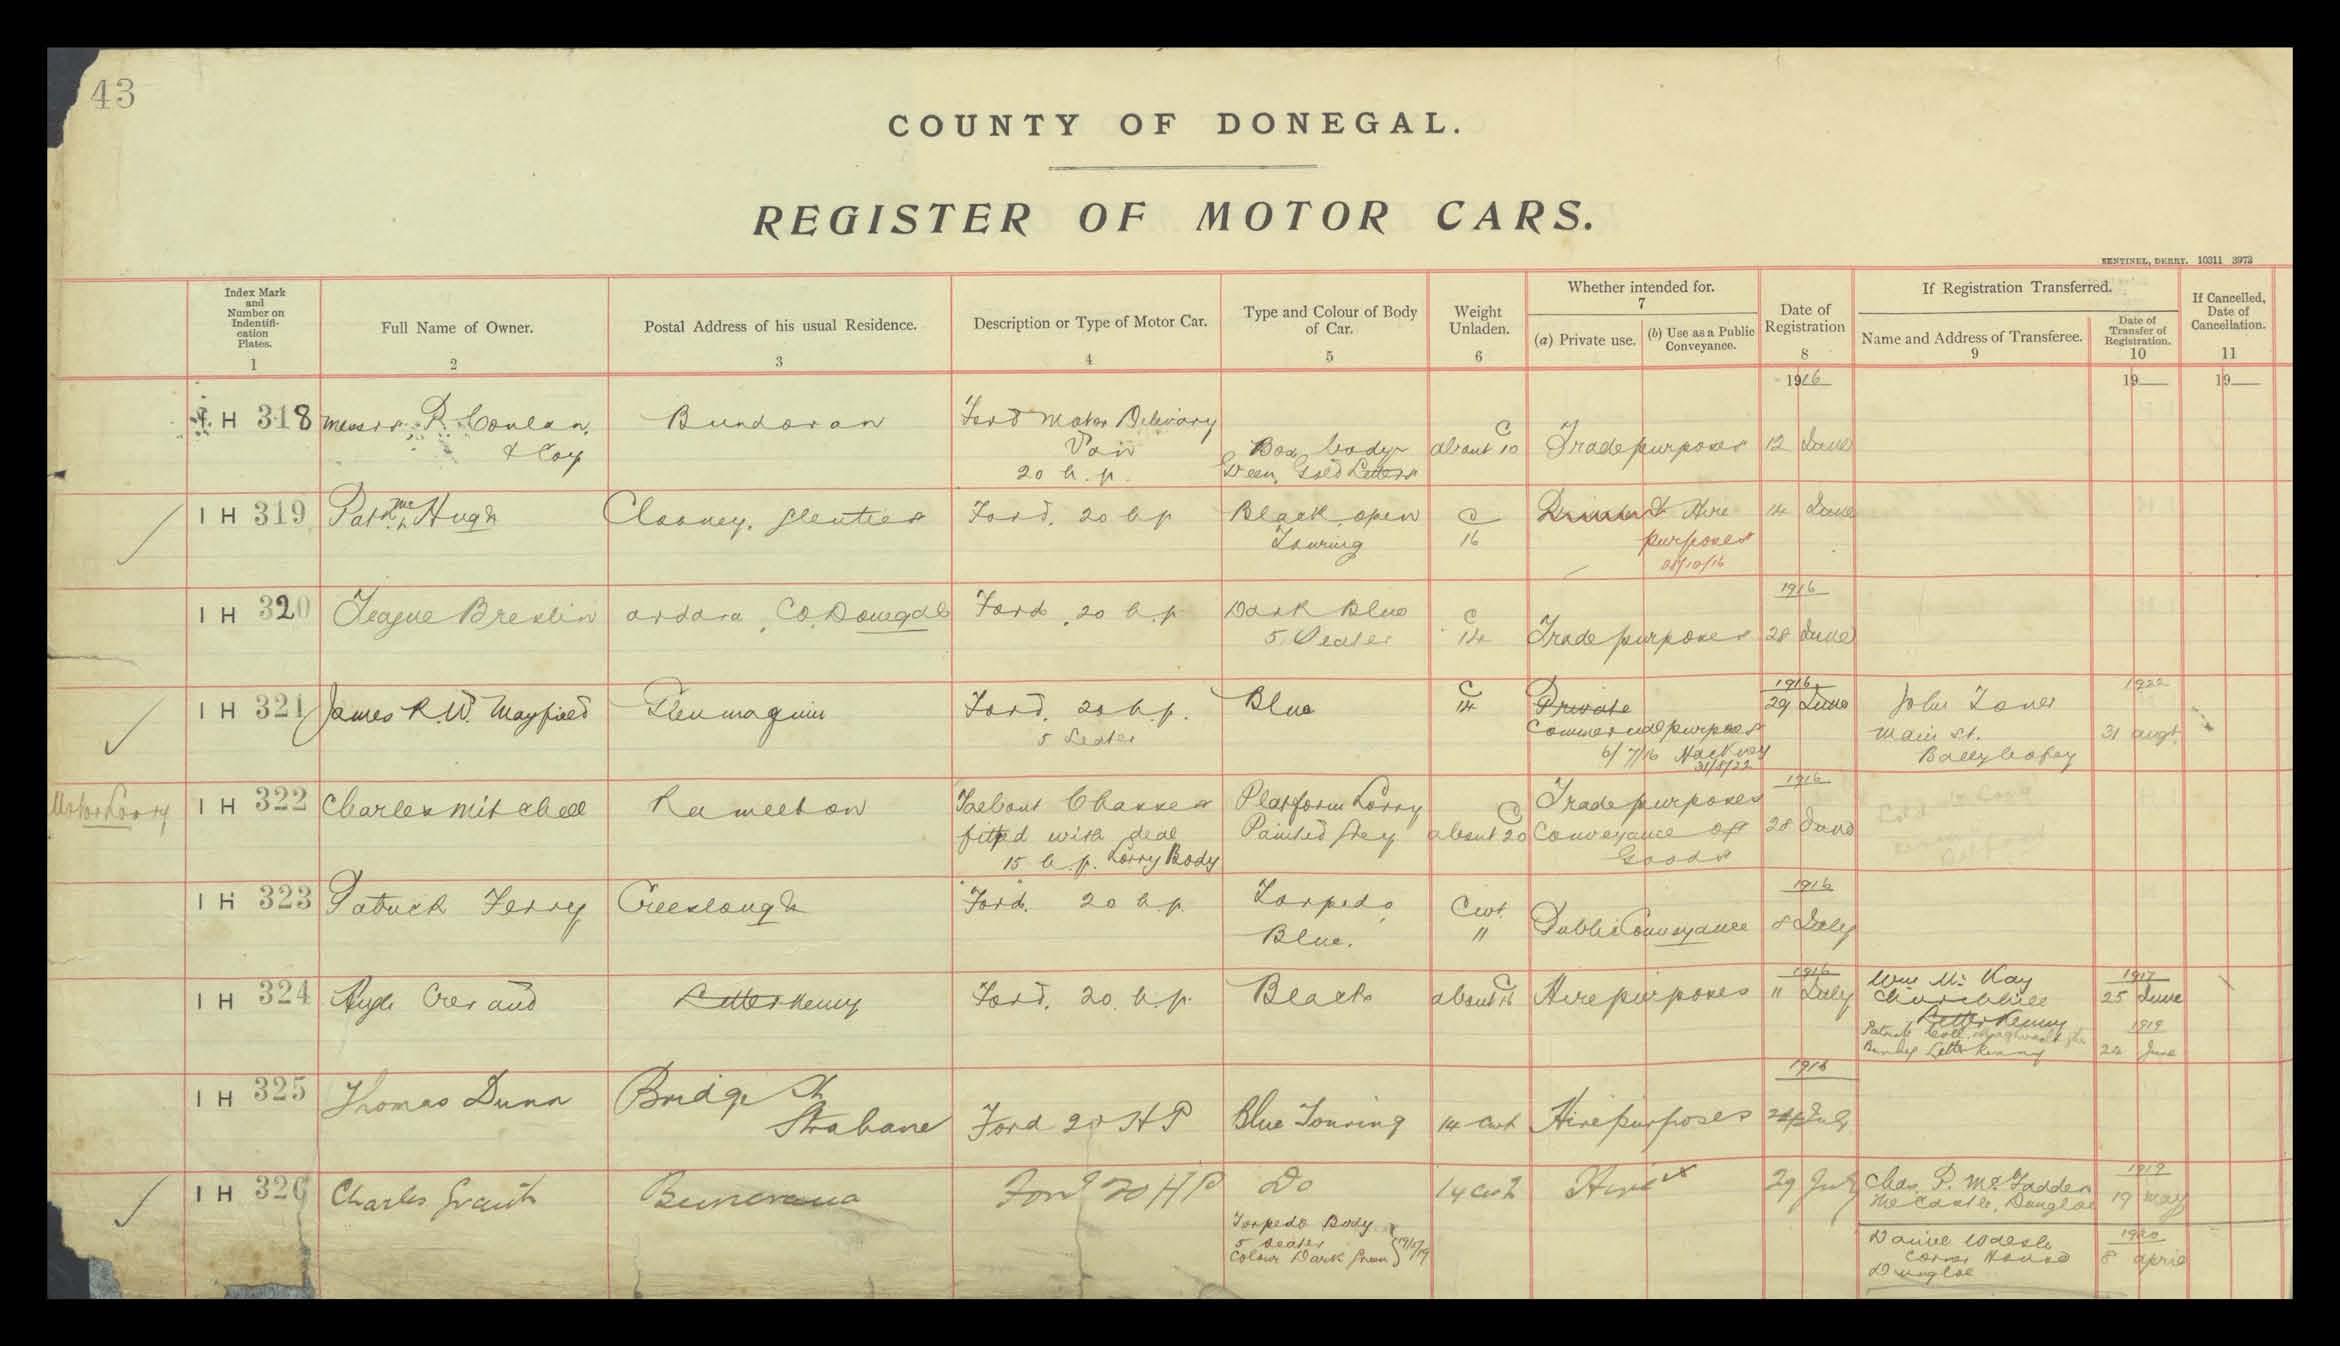 43
COUNTY OF DONEGAL.
REGISTER OF MOTOR CARS.
SENTINEL, DERRY. 10311 3973
Index Mark and Number on Indentifi-cation Plates. 1
Full Name of Owner. 2
Postal Address of his usual Residence. 3
Description or Type of Motor Car. 4
Type and Colour of Body of Car. 5
Weight Unladen. 6
Whether intended for. 7
(a) Private use.
(b) Use as a Public Conveyance.
Date of Registration 8
If Registration Transferred.
Name and Address of Transferee. 9
Date of Transfer of Registration. 10
If Cancelled, Date of Cancellation. 11
1916 19 19
I H 318 Messrs P. Conlan, & Coy Bundoran Ford Motor Delivery Van 20 h.p. Box body Green, Gold Letters about 10 C Trade purposes 12 June
I H 319 Patk McHugh Clooney, Glenties Ford, 20 h.p Black open Touring C 16 Private & Hire purposes 14 June
I H 320 Teague Breslin Ardara, Co. Donegal Ford, 20 h.p Dark Blue 5 Seater C 14 Trade purposes 1916 28 June
I H 321 James R.W. Mayfield Glenmaquin Ford, 20 h.p. 5 Seater Blue C 14 Private Commercial purposes 6/7/16 Hackney 31/8/22 1916 29 June John Toner Main St. Ballybofey 1922 31 Augt
Motor Lorry I H 322 Charles Mitchell Ramelton Talbout Chasses fitted with deal Lorry Body 15 h.p. Platform Lorry Painted Grey about 20 C Trade purposes Conveyance of Goods 1916 28 June
I H 323 Patrick Ferry Creeslough Ford. 20 h.p. Torpedo, Blue. Cwt. 11 Public Conveyance 1916 8 July
I H 324 Hugh Crerand Letterkenny Ford, 20 h.p. Black about 16 C Hire purposes 1916 11 July Wm McKay Churchhill Letterkenny 1917 25 June
Patrick Letterkenny 1919 24 June
I H 325 Thomas Dunn Bridge St Strabane Ford 20 H P Blue Touring 14 cwt Hire purposes 1916 24 July
I H 326 Charles Grant Buncrana Ford 20 H P Do 14 cwt Hire 29 July Chas. P. McFadden The Castle, Dungloe 1919 19 May
Torpedo Body 5 seater Colour Dark Green 19/5/19
Corner House Dungloe 1920 8 April